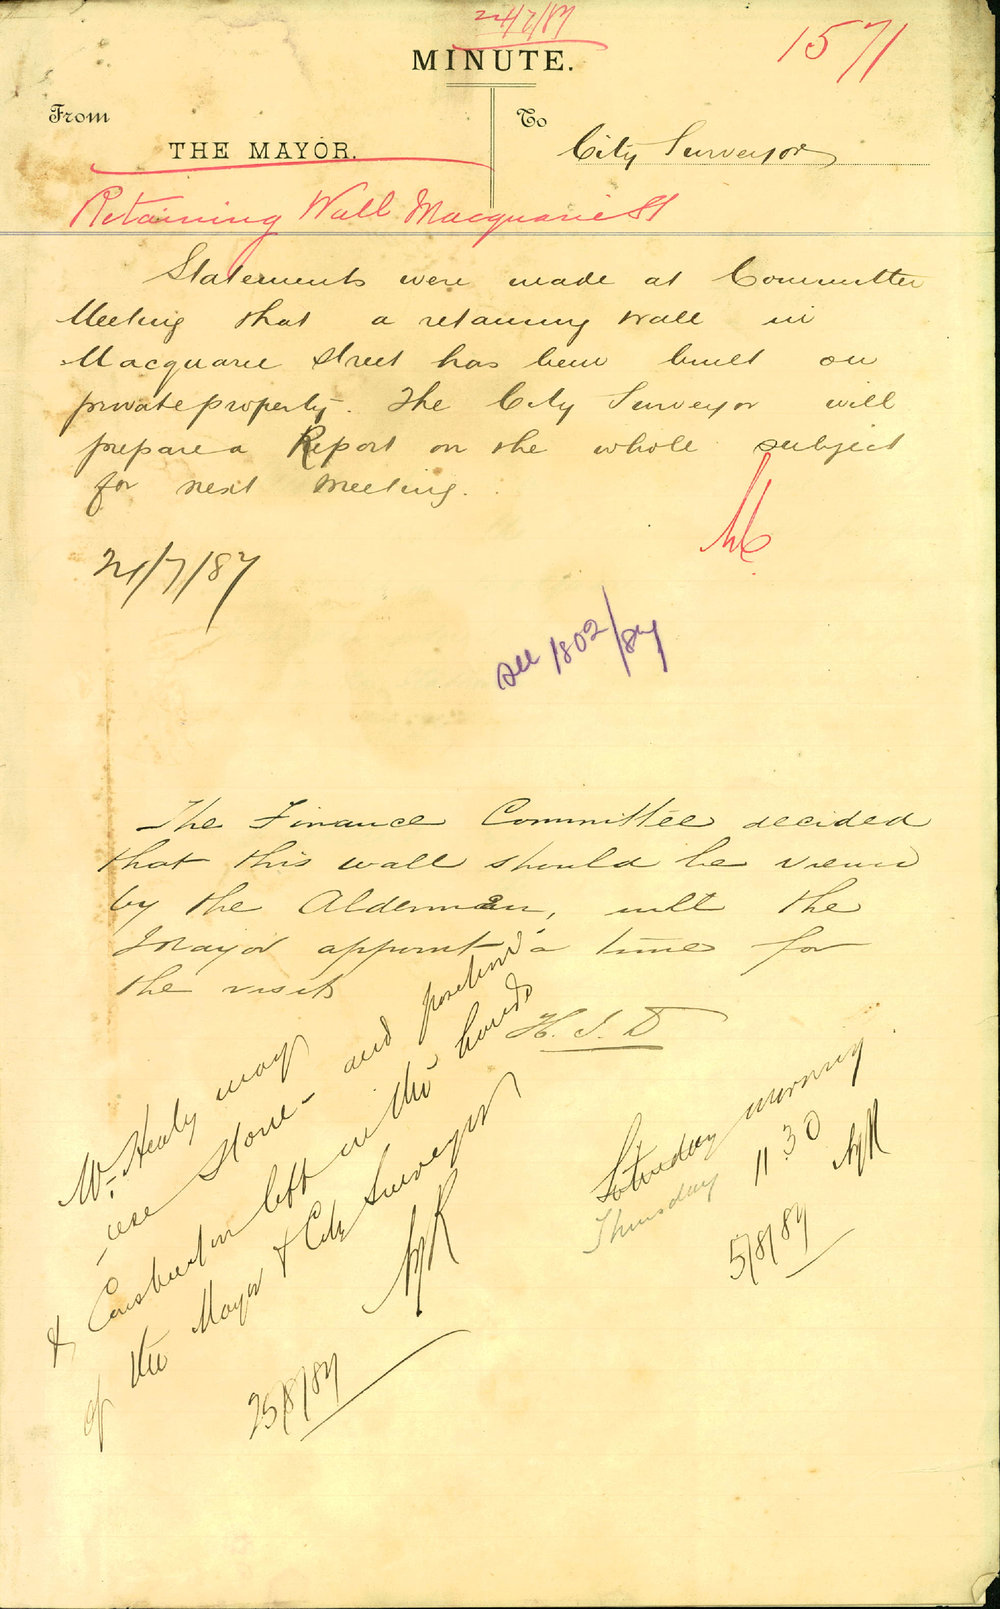 24/7/87
1571
MINUTE.
From
To
THE MAYOR.
City Surveyor
Retaining Wall Macquarie St
Statements were made at Committee
Meeting that a retaining wall in
Macquarie Street has been built on
private property. The City Surveyor will
prepare a Report on the whole subject
for next Meeting.
24/7/87
see 1802/87
The Finance Committee decided
that this wall should be viewed
by the Aldermen, will the
Mayor appoint a time for
the visit
H. J. D
Saturday morning
Thursday 11 30
5/8/87
Mr. Healy may
use stone - and position
& Construction left in the hands
of the Mayor & City Surveyor
25/8/87